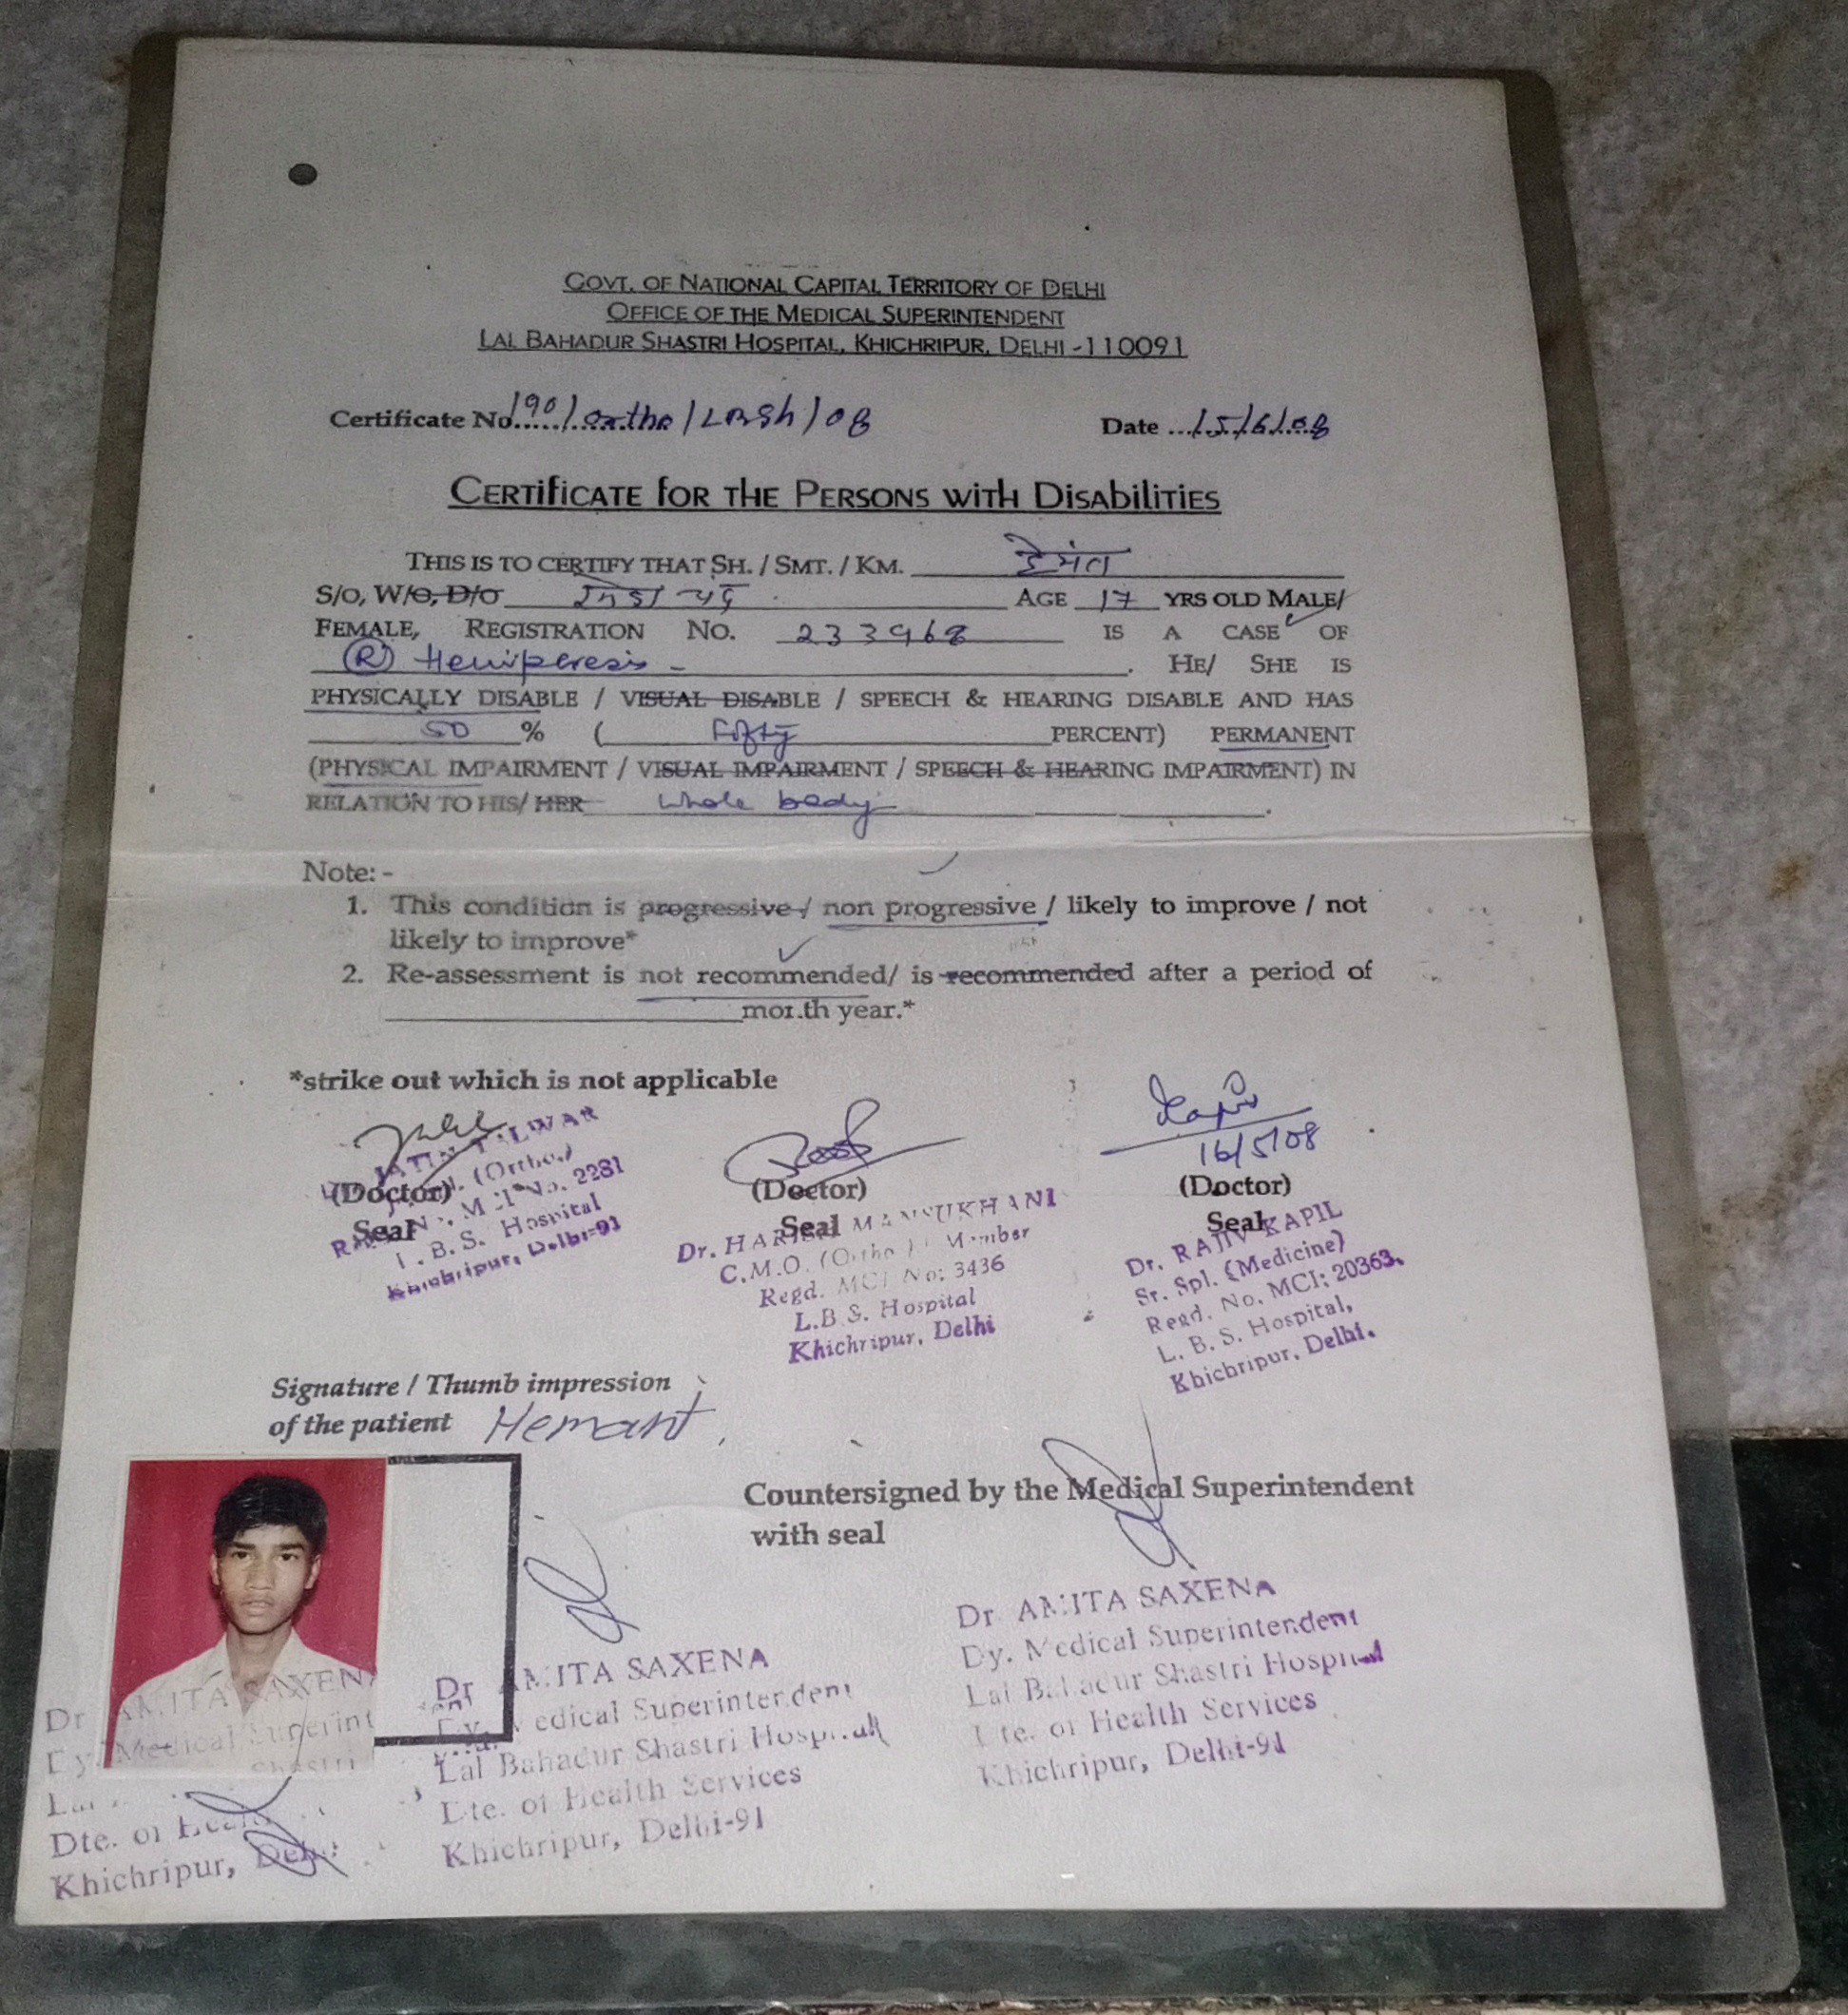 GOVT. OF NATIONAL CAPITAL TERRITORY OF DELHI
OFFICE OF THE MEDICAL SUPERINTENDENT
LAL BAHADUR SHASTRI HOSPITAL, KHICHRIPUR, DELHI -110091
Certificate No. 190/ortho/LBSh/08 Date 15/6/08
CERTIFICATE FOR THE PERSONS WITH DISABILITIES
THIS IS TO CERTIFY THAT SH. / SMT. / KM. हेमंत
S/O, W/O, D/O AGE 17 YRS OLD MALE/
FEMALE, REGISTRATION NO. 233968 IS A CASE OF
(R) Hemiperesis - . HE/ SHE IS
PHYSICALLY DISABLE / VISUAL DISABLE / SPEECH & HEARING DISABLE AND HAS
50 % ( Fifty PERCENT) PERMANENT
(PHYSICAL IMPAIRMENT / VISUAL IMPAIRMENT / SPEECH & HEARING IMPAIRMENT) IN
RELATION TO HIS/ HER whole body .
Note: -
1. This condition is progressive / non progressive / likely to improve / not
likely to improve*
2. Re-assessment is not recommended/ is recommended after a period of
month year.*
*strike out which is not applicable
JATIN TALWAR
(Ortho.)
(Doctor)
Seal
MCI No. 2281
L. B. S. Hospital
Khichripur, Delhi-91
(Doctor)
Seal
Dr. HARISH MANSUKHANI
C.M.O. (Ortho) Member
Regd. MCI No: 3436
L.B.S. Hospital
Khichripur, Delhi
Kapil
16/5/08
(Doctor)
Seal
Dr. RAJIV KAPIL
Sr. Spl. (Medicine)
Regd. No. MCI: 20363.
L. B. S. Hospital,
Khichripur, Delhi.
Signature / Thumb impression
of the patient Hemant
Countersigned by the Medical Superintendent
with seal
Dr AMITA SAXENA
Dy. Medical Superintendent
Lal Bahadur Shastri Hospital
Dte. of Health Services
Khichripur, Delhi-91
Dr AMITA SAXENA
Dy. Medical Superintendent
Lal Bahadur Shastri Hospital
Dte. of Health Services
Khichripur, Delhi-91
Dr AMITA SAXENA
Dy. Medical Superint
Lal Shastri
Dte. of Health
Khichripur, Delhi